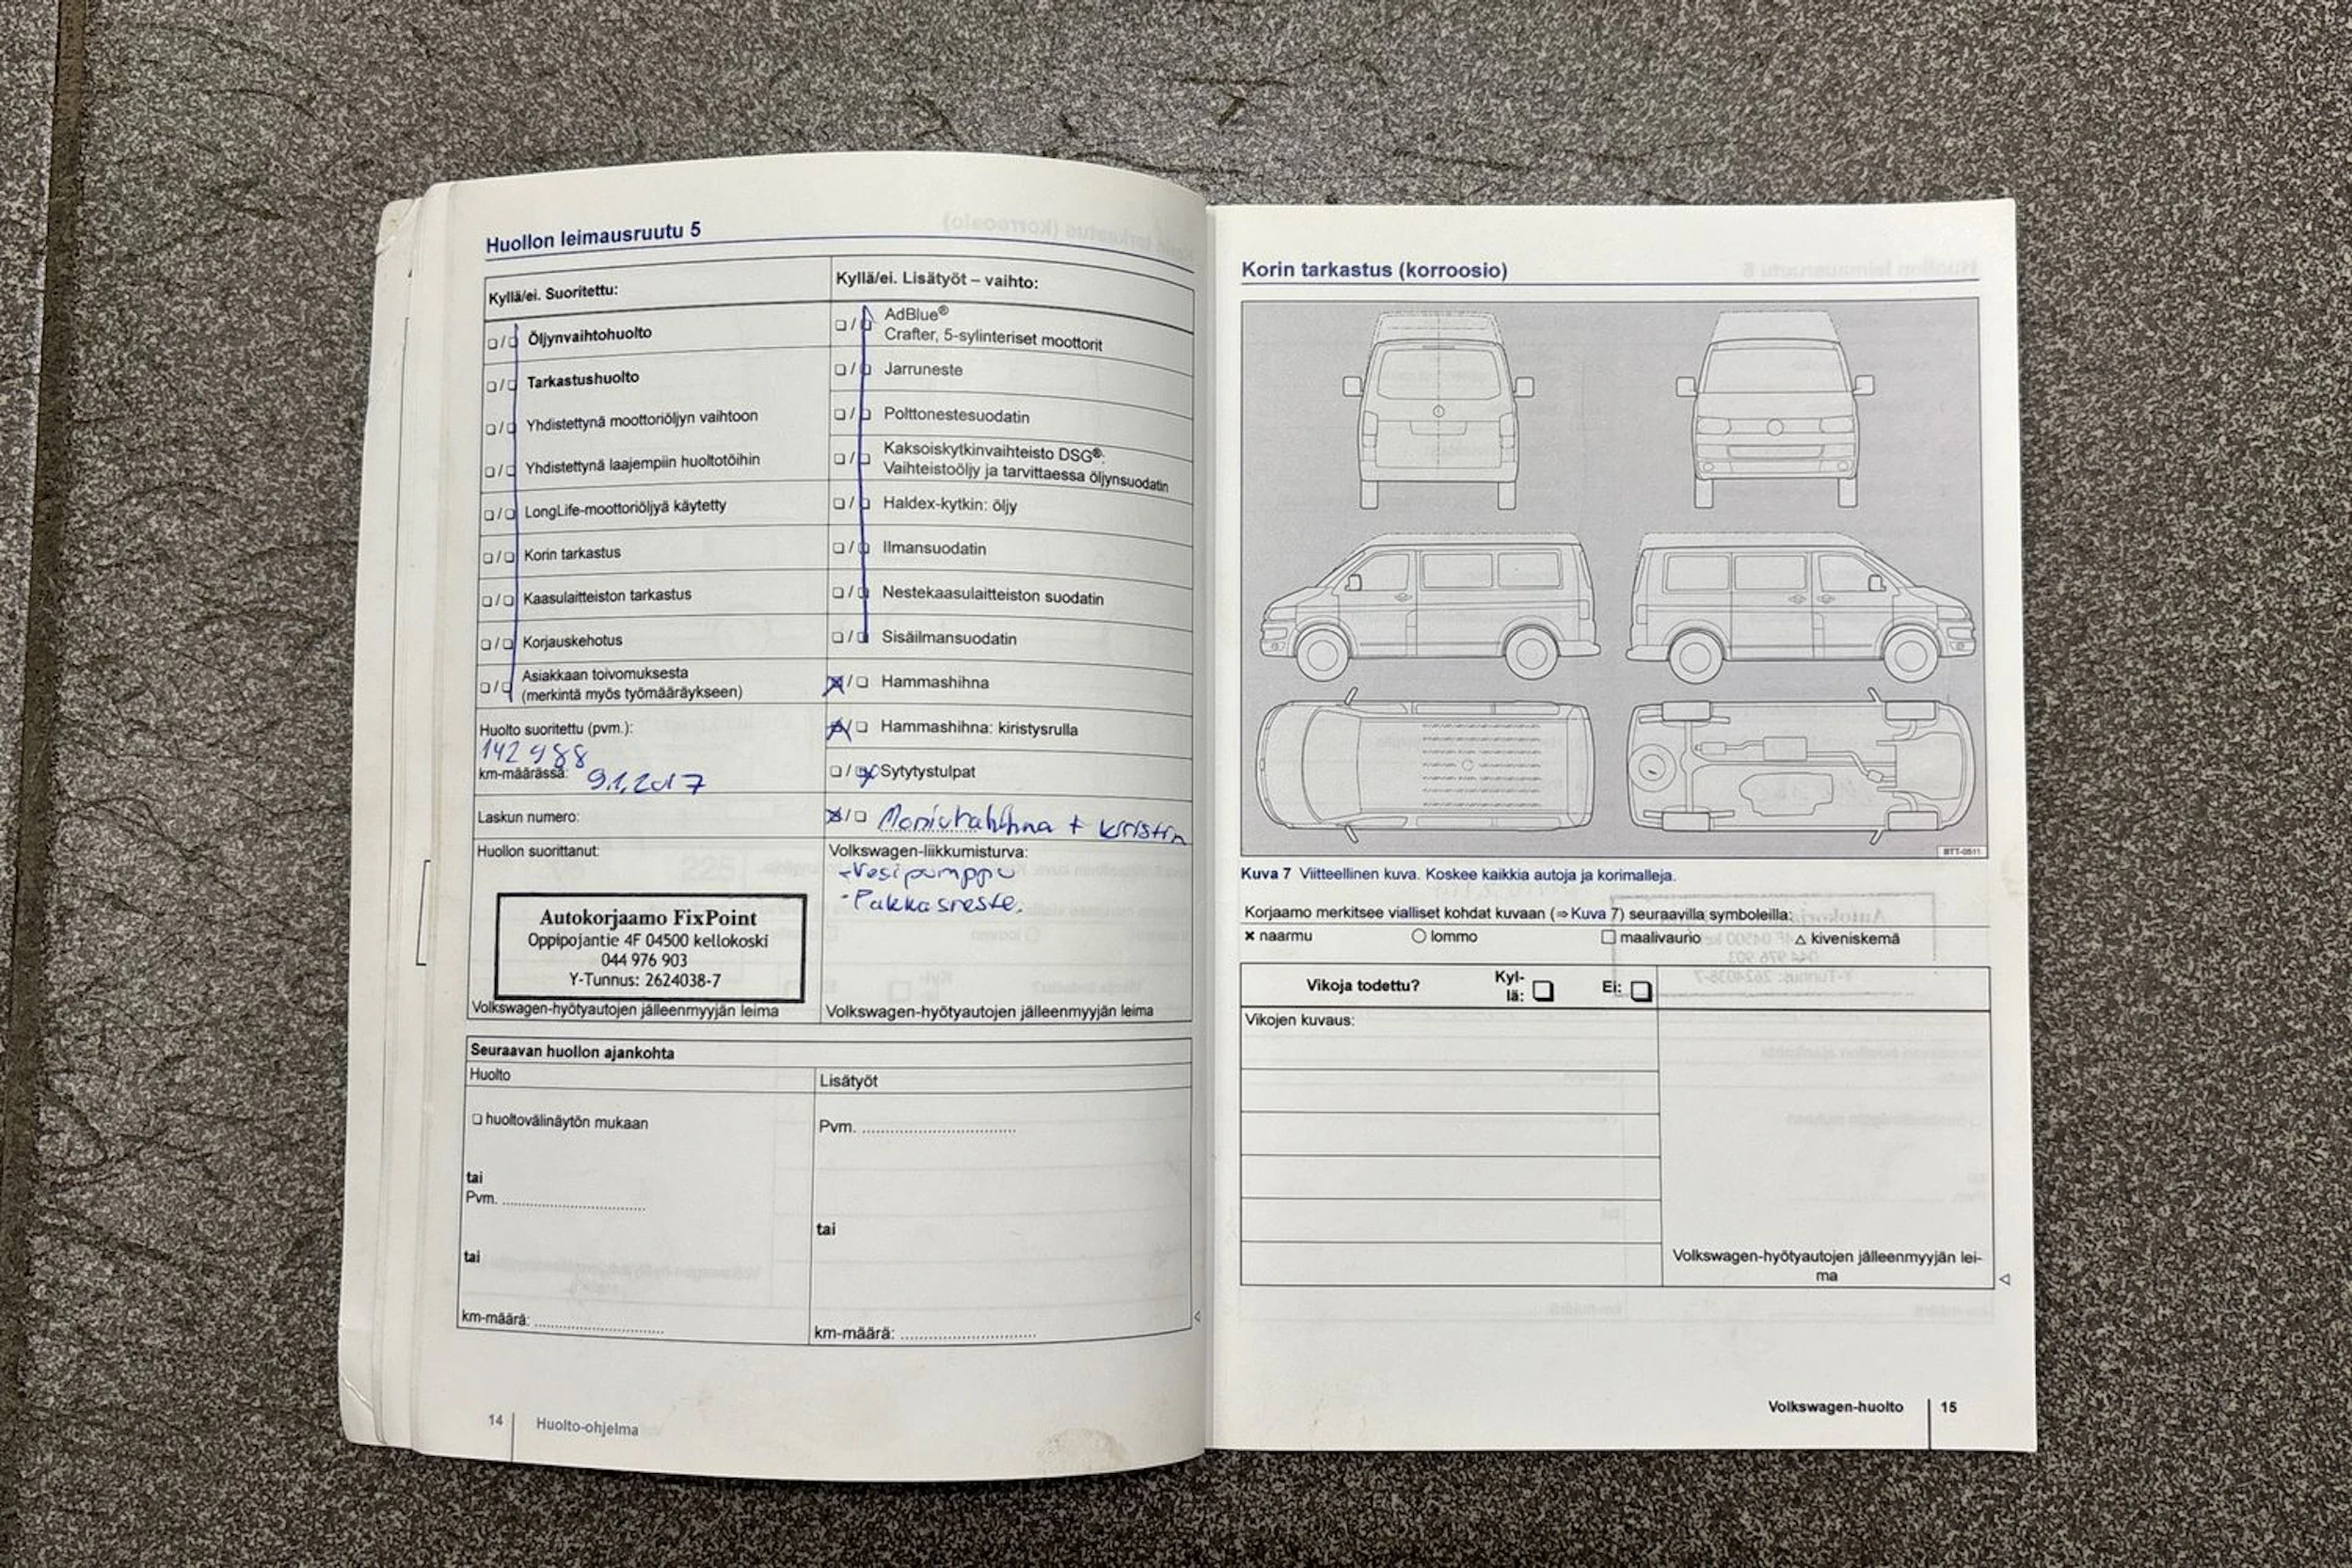 Huollon leimausruutu 5
Kyllä/ei. Suoritettu:
❑/❑ Öljynvaihtohuolto
❑/❑ Tarkastushuolto
❑/❑ Yhdistettynä moottoriöljyn vaihtoon
❑/❑ Yhdistettynä laajempiin huoltotöihin
❑/❑ LongLife-moottoriöljyä käytetty
❑/❑ Korin tarkastus
❑/❑ Kaasulaitteiston tarkastus
❑/❑ Korjauskehotus
❑/❑ Asiakkaan toivomuksesta
(merkintä myös työmääräykseen)
Huolto suoritettu (pvm.):
142 988
km-määrässä: 9.1.2017
Laskun numero:
Huollon suorittanut:
Autokorjaamo FixPoint
Oppipojantie 4F 04500 kellokoski
044 976 903
Y-Tunnus: 2624038-7
Volkswagen-hyötyautojen jälleenmyyjän leima
Kyllä/ei. Lisätyöt – vaihto:
❑/❑ AdBlue®
Crafter, 5-sylinteriset moottorit
❑/❑ Jarruneste
❑/❑ Polttonestesuodatin
❑/❑ Kaksoiskytkinvaihteisto DSG®:
Vaihteistoöljy ja tarvittaessa öljynsuodatin
❑/❑ Haldex-kytkin: öljy
❑/❑ Ilmansuodatin
❑/❑ Nestekaasulaitteiston suodatin
❑/❑ Sisäilmansuodatin
☒/❑ Hammashihna
☒/❑ Hammashihna: kiristysrulla
❑/☒ Sytytystulpat
☒/❑ Moniurahihna + kiristin
Volkswagen-liikkumisturva:
-Vesipumppu
-Pakkasneste.
Volkswagen-hyötyautojen jälleenmyyjän leima
Seuraavan huollon ajankohta
Huolto
❑ huoltovälinäytön mukaan
tai
Pvm. ................................
tai
km-määrä: ................................
Lisätyöt
Pvm. ................................
tai
km-määrä: ................................
14 Huolto-ohjelma
Korin tarkastus (korroosio)
BTT-0511
Kuva 7 Viitteellinen kuva. Koskee kaikkia autoja ja korimalleja.
Korjaamo merkitsee vialliset kohdat kuvaan (⇒ Kuva 7) seuraavilla symboleilla:
× naarmu ○ lommo □ maalivaurio △ kiveniskemä
Vikoja todettu? Kyl-
lä: ❑ Ei: ❑
Vikojen kuvaus:
Volkswagen-hyötyautojen jälleenmyyjän lei-
ma
Volkswagen-huolto 15